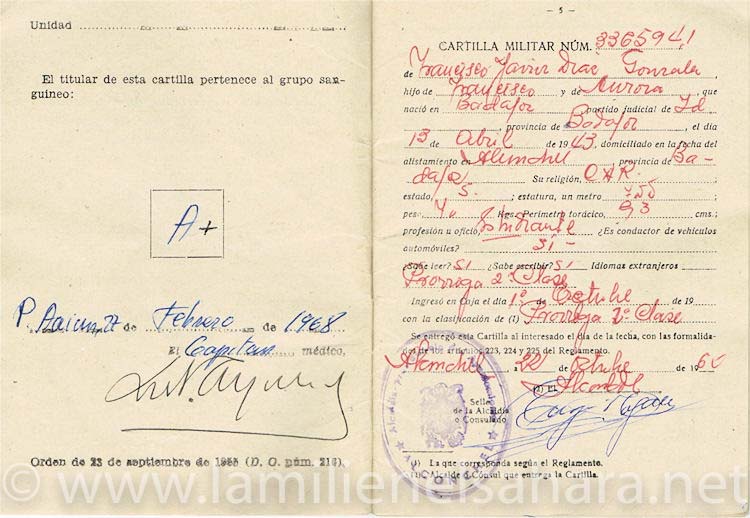 Unidad
El titular de esta cartilla pertenece al grupo san-
guíneo:
A+
P. Aaiun, 27 de Febrero de 1968
El Capitan médico,
Orden de 23 de septiembre de 1955 (D. O. núm. 216).
— 5 —
CARTILLA MILITAR NÚM. 3365941
de Francisco Javier Diaz Gonzalez
hijo de Francisco y de Aurora, que
nació en Badajoz partido judicial de Id
, provincia de Badajoz, el día
13 de Abril de 1943, domiciliado en la fecha del
alistamiento en provincia de Ba-
dajoz Su religión, CAR.
estado, S. ; estatura, un metro
peso Kgs. Perímetro torácico, 93 cms.;
profesión u oficio, Estudiante ¿Es conductor de vehículos
automóviles? Si -
¿Sabe leer? SI ¿Sabe escribir? SI Idiomas extranjeros
Prorroga 2ª Clase
Ingresó en Caja el día 1º de Octubre de 19
con la clasificación de (1) Prorroga 2ª Clase
Se entregó esta Cartilla al interesado el día de la fecha, con las formalida-
des de los artículos 223, 224 y 225 del Reglamento.
22 de Octubre de 196
(2) El Alcalde
Sello
de la Alcaldía
o Consulado
ALCONCHEL
(1) La que corresponda según el Reglamento.
(2) Alcalde o Cónsul que entrega la Cartilla.
© www.lamiliensahara.net